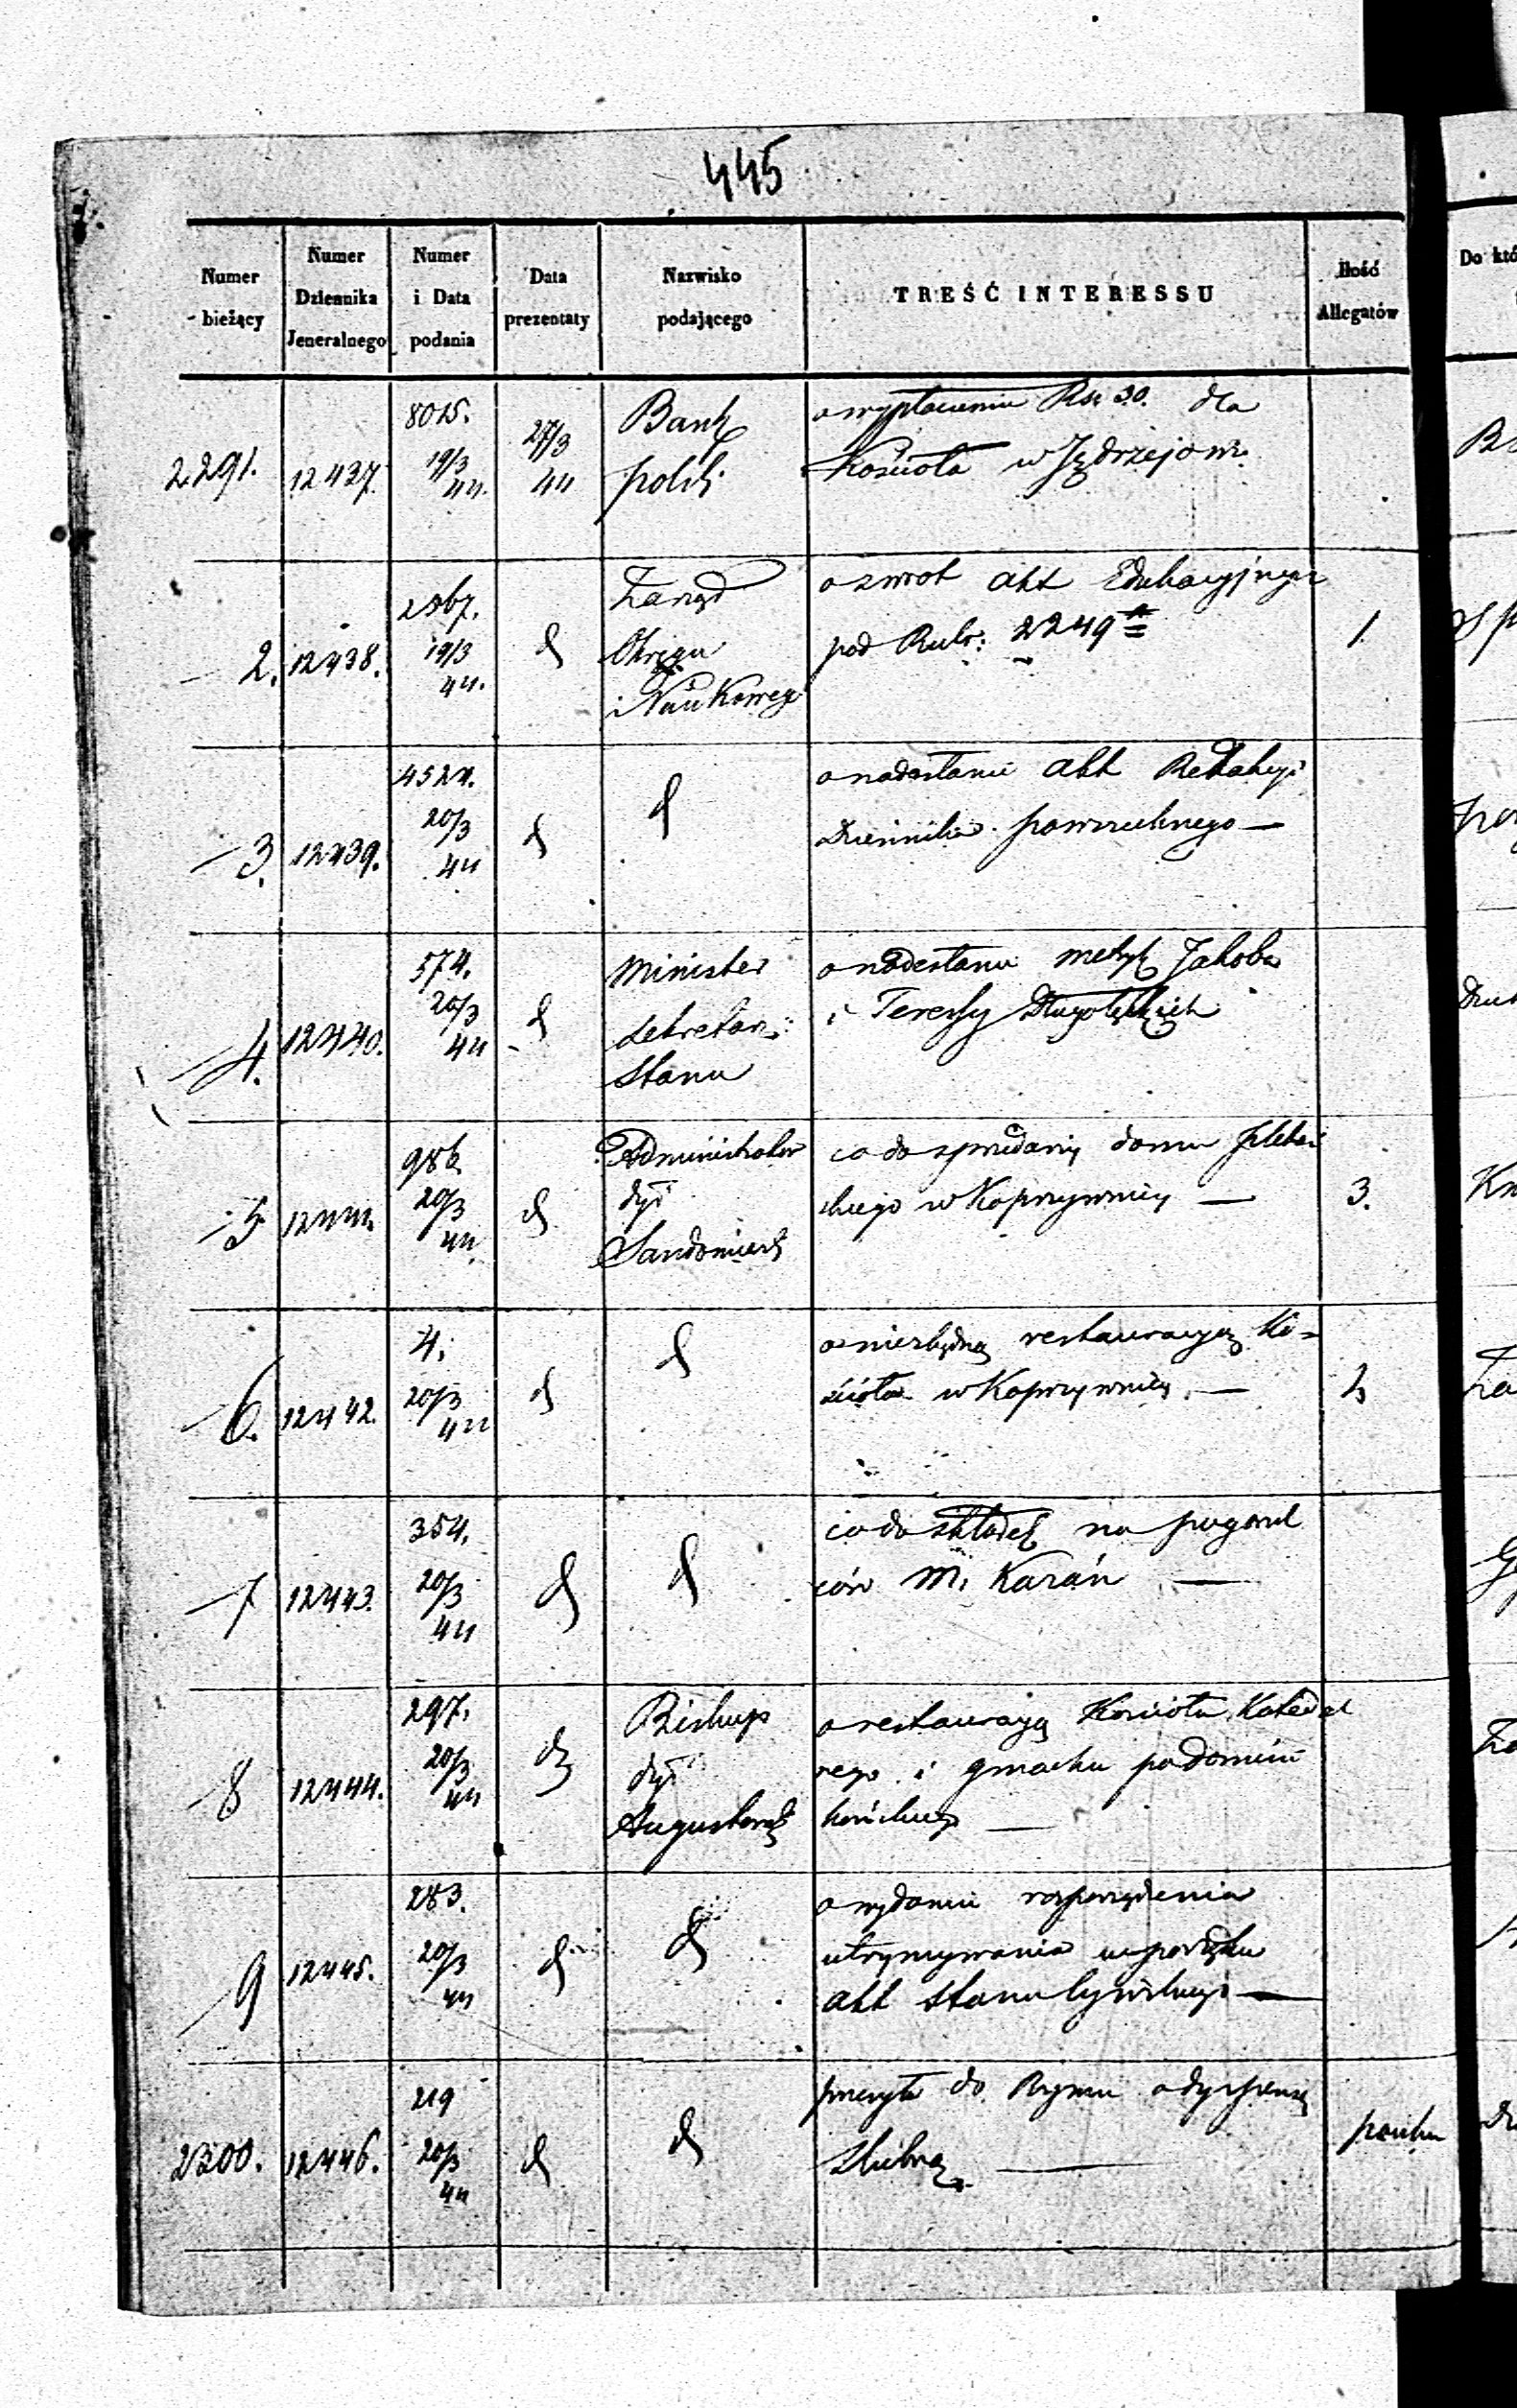 445
Numer bieżący
Numer Dziennika Jeneralnego
Numer i Data podania
Data prezentaty
Nazwisko podającego
TREŚĆ INTERESSU
Ilość Allegatów
Do któ
2291. 12437. 8015. 19/3 44. 27/3 44 Bank polski o wypłacenie Rsr 30. dla
Kościoła w Jędrzejow.
2. 12438. 2567. 19/3 44. d Zarząd Okręgu Naukowego o zwrot akt Edukacyjnych
pod Rubr: 2249 1.
3. 12439. 4524. 20/3 44 d d o nadesłanie akt Redakcyi
Dziennika powszechnego —
4. 12440. 574. 20/3 44 d Minister Sekretarz Stanu o nadesłanie metryk Jakoba
i Teressy Długołęckich
5 12441. 986. 20/3 44 d Administrator dyi Sandomiersk co do sprzedaży domu plebań
skiego w Koprzywnicy — 3.
6. 12442. 4. 20/3 44 d d o niezbędną restauracyą Ko-
ścioła w Koprzywnicy. —
7 12443. 354. 20/3 44 d d co do składek na pogorzel
ców M. Kazań —
8 12444. 297. 20/3 44 d Biskup dyi Augustowsk o restauracyą Kościoła Katedral
nego i gmachu podomini
kańskiego —
9 12445. 283. 20/3 44 d d o wydanie rozporządzenia
utrzymywania w porządku
akt stanu Cywilnego —
2300. 12446. 219 20/3 44 d d przesyła do Rzymu o dyspensę
ślubną. —